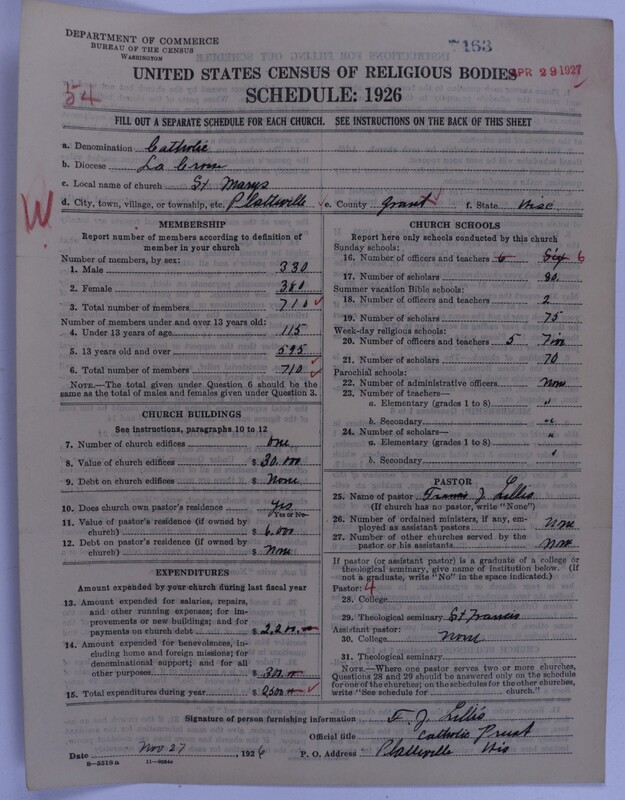 DEPARTMENT OF COMMERCE
BUREAU OF THE CENSUS
WASHINGTON
7163
UNITED STATES CENSUS OF RELIGIOUS BODIES
APR 29 1927
54
SCHEDULE: 1926
FILL OUT A SEPARATE SCHEDULE FOR EACH CHURCH. SEE INSTRUCTIONS ON THE BACK OF THIS SHEET
a. Denomination Catholic
b. Diocese La Crosse
c. Local name of church St Marys
d. City, town, village, or township, etc. Platteville e. County Grant f. State Wisc
W.
MEMBERSHIP
Report number of members according to definition of member in your church
Number of members, by sex:
1. Male 330
2. Female 380
3. Total number of members 710
Number of members under and over 13 years old:
4. Under 13 years of age 115
5. 13 years old and over 595
6. Total number of members 710
NOTE.—The total given under Question 6 should be
same as the total of males and females given under Question 3.
CHURCH BUILDINGS
See instructions, paragraphs 10 to 12
7. Number of church edifices One
8. Value of church edifices $ 30.000
9. Debt on church edifices $ None
10. Does church own pastor's residence Yes
Yes or No
11. Value of pastor's residence (if owned by
church) $ 6.000
12. Debt on pastor's residence (if owned by
church) $ None
EXPENDITURES
Amount expended by your church during last fiscal year
13. Amount expended for salaries, repairs,
and other running expense; for im-
provements or new buildings; and for
payments on church debt $ 2,200.
14. Amount expended for benevolences, in-
cluding home and foreign missions; for
denominational support; and for all
other purposes $ 300
15. Total expenditures during year $ 2500
CHURCH SCHOOLS
Report here only schools conducted by this church
Sunday schools:
16. Number of officers and teachers 6 Six 6
17. Number of scholars 80
Summer vacation Bible schools:
18. Number of officers and teachers 2
19. Number of scholars 75
Week-day religious schools:
20. Number of officers and teachers 5
21. Number of scholars 70
Parochial schools:
22. Number of administrative officers None
23. Number of teachers—
a. Elementary (grades 1 to 8) "
b. Secondary "
24. Number of scholars—
a. Elementary (grades 1 to 8) "
b. Secondary "
PASTOR
25. Name of pastor Francis J Lillis
(If church has no pastor, write "None")
26. Number of ordained ministers, if any, em-
ployed as assistant pastors None
27. Number of other churches served by the
pastor or his assistants None
If pastor (or assistant pastor) is a graduate of a college or
theological seminary, give name of institution below. (If
not a graduate, write "No" in the space indicated.)
Pastor: 4
28. College
29. Theological seminary St Francis
Assistant pastor:
30. College None
31. Theological seminary
NOTE.—Where one pastor serves two or more churches,
Questions 28 and 29 should be answered only on the schedule
for one of the churches; on the schedules for the other churches,
write "See schedule for church."
Signature of person furnishing information F. J. Lillis
Official title Catholic Priest
Date Nov 27, 1926 P. O. Address Platteville Wis
8-5518a 11-9684a